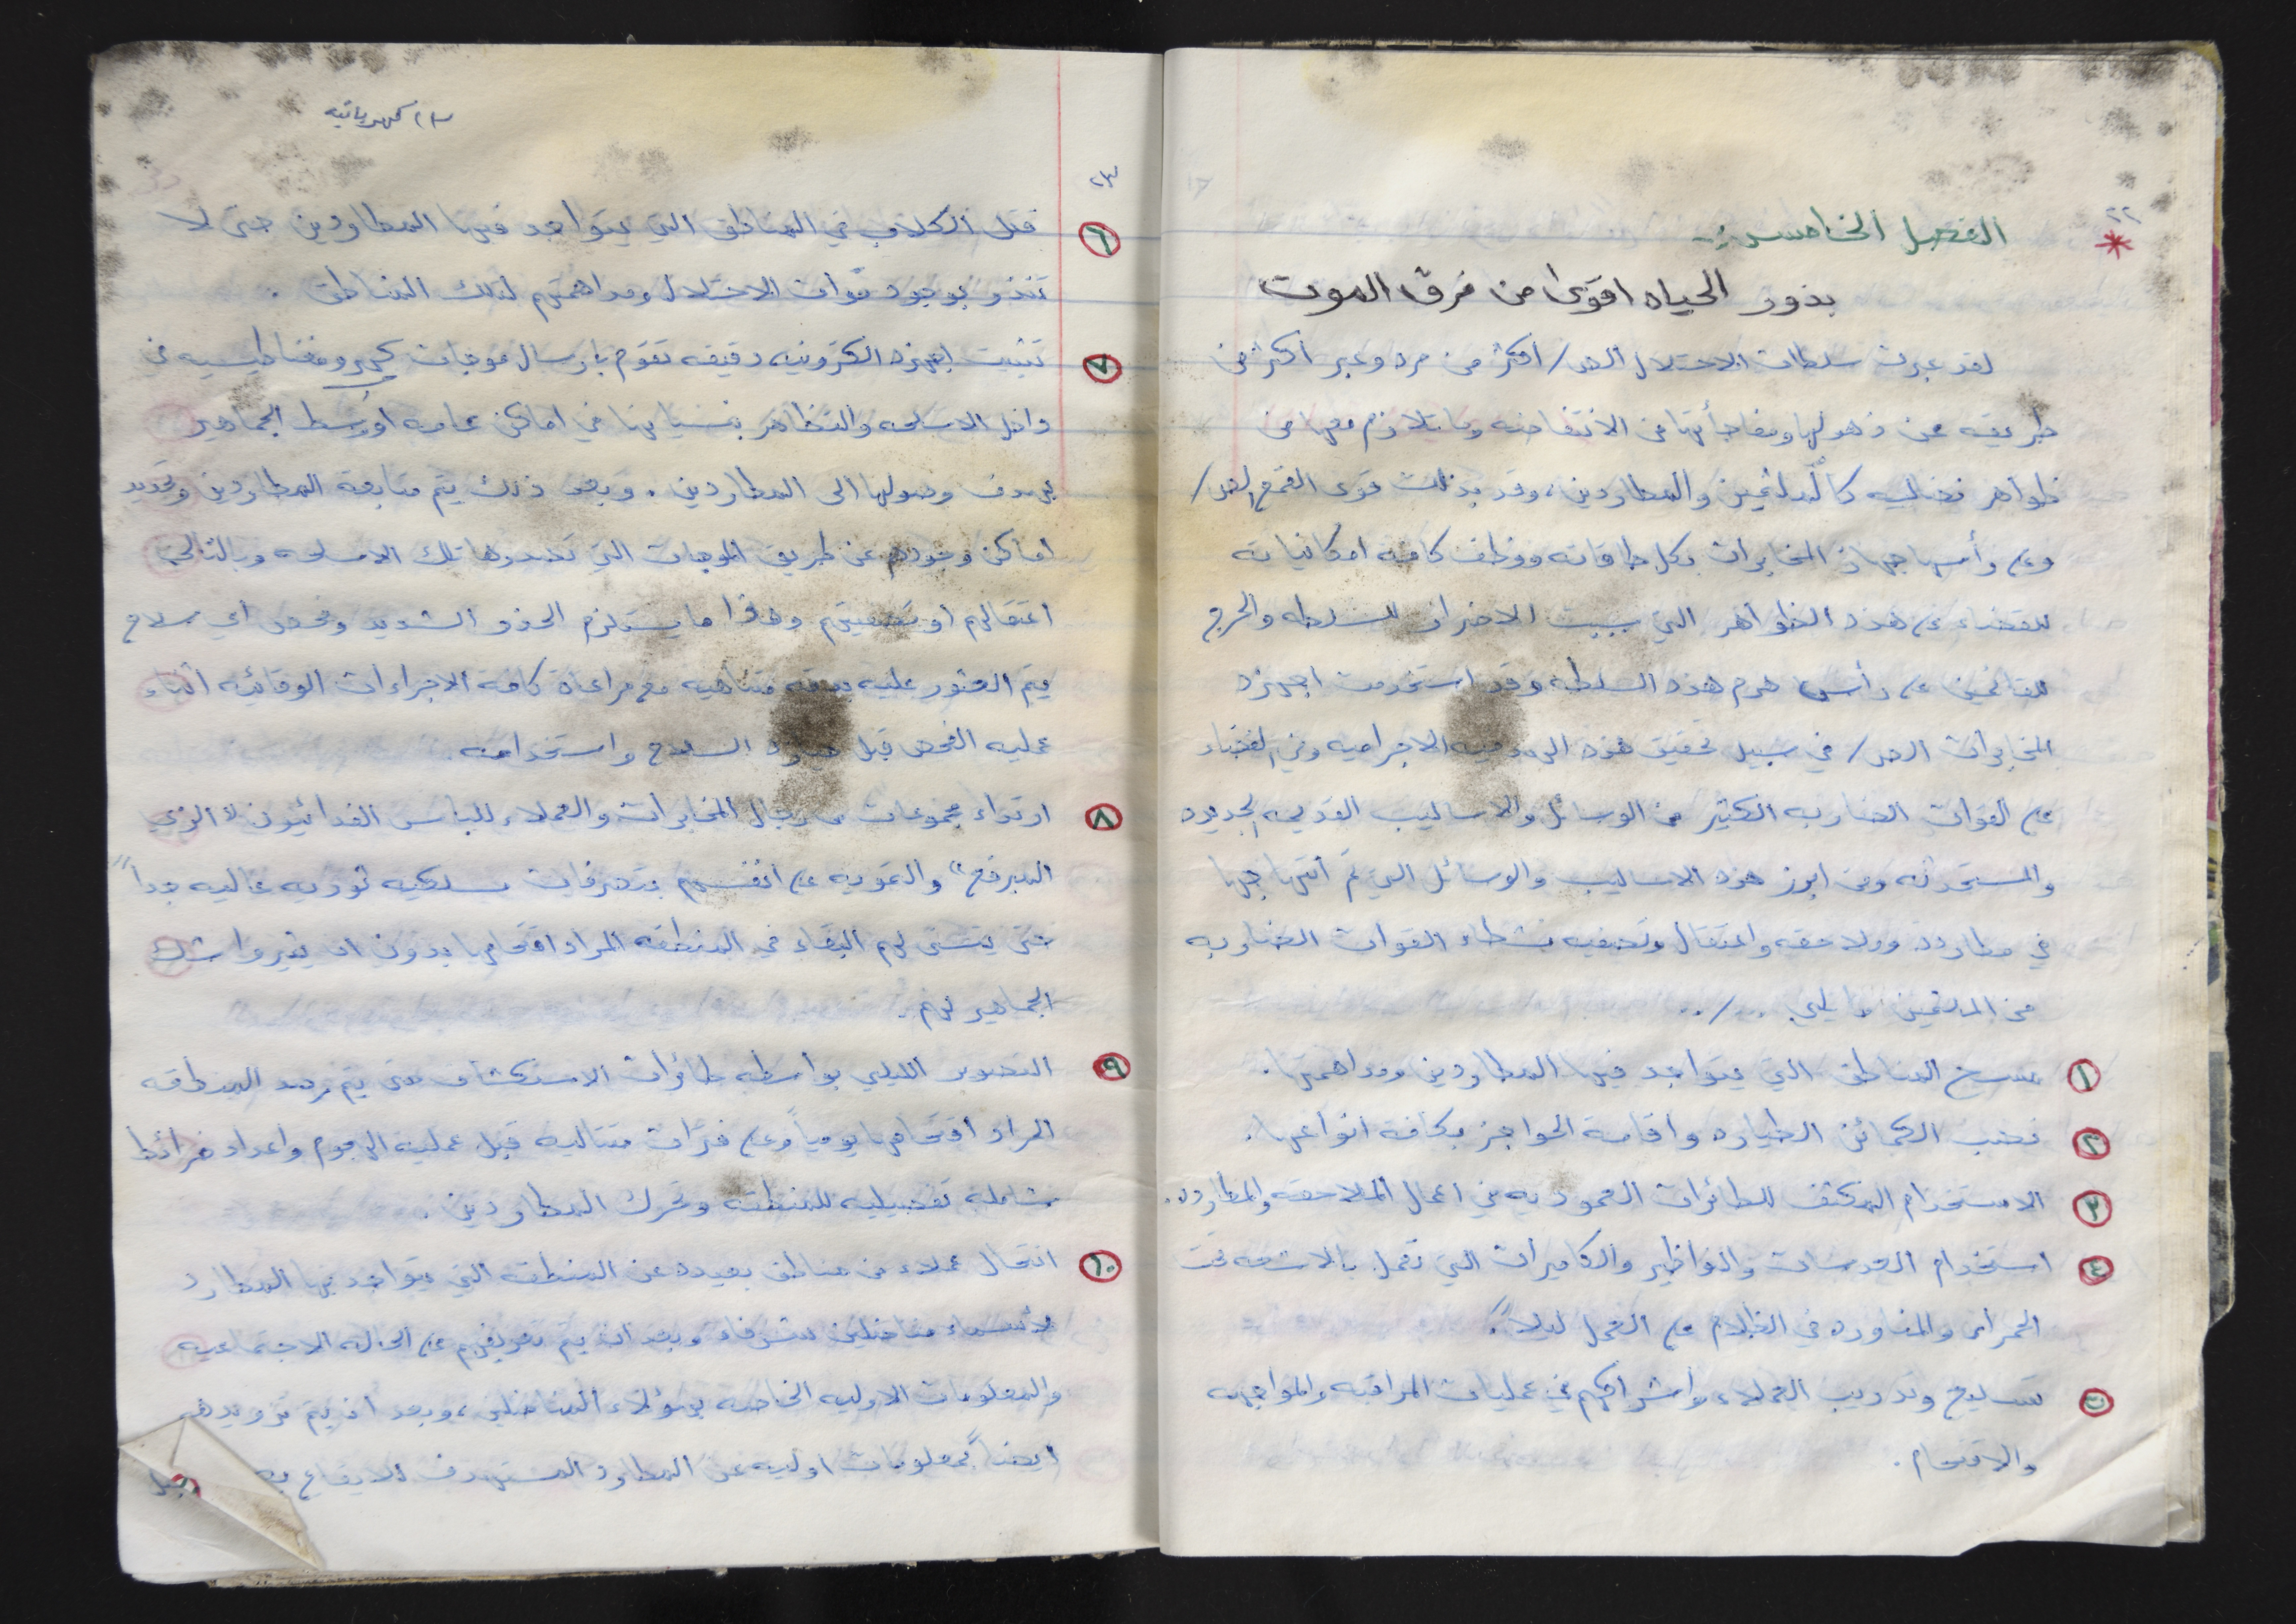 ٢٢
الفصل الخامس :-
بذور الحياه اقوى من فرق الموت
لقد عبرت سلطات الاحتلال الصـ/ أكثر من مره وعبر أكثر من
طريقه عن ذهولها ومفاجأتها من الانتفاضه وما تلازم معها من
ظواهر نضاليه كالملثمين والمطاردين، وقد بذلت قوى القمع الصـ/
وعلى رأسها جهاز المخابرات بكل طاقاته ووظف كافة امكانياته
للقضاء على هذه الظواهر التي سببت الاحراج للسلطه والحرج
للقائمين على رأس هرم هذه السلطه وقد استخدمت اجهزة
المخابرات الصـ/ في سبيل تحقيق هذه الاجراميه وفي القضاء
على القوات الضاربه الكثير من الوسائل والاساليب القديمه الجديده
والمستحدثه ومن ابرز هذه الاساليب والوسائل التي تم انتهاجها
في مطارده وملاحقه واعتقال وتصفيه نشطاء القوات الضاربه
من الملثمين ما يلي ../..
١ مسح المناطق التي يتواجد فيها المطاردين ومداهمتها.
٢ نصب الكمائن الطياره واقامة الحواجز بكافة انواعها.
٣ الاستخدام المكثف للطائرات العموديه في اعمال الملاحقه والمطارده.
٤ استخدام العدسات والنواظير والكاميرات التي تعمل بالاشعه تحت
الحمراء والمناوره في الظلام على العمل ليلاً.
٥ تسليح وتدريب العملاء واشراكهم في عمليات المراقبه والمواجهه
والاقتحام.
كهربائيه
٢٣
٦ قتل الكلاب في المناطق التي يتواجد فيها المطاردين حتى لا
تنذر بوجود قوات الاحتلال ومداهمتهم لتلك المناطق .
٧ تثبيت اجهزه الكترونيه دقيقه تقوم بارسال موجات كهرومغناطيسيه في
داخل الاسلحه والتظاهر بنسيانها في اماكن عامه او وسط الجماهير
بهدف وصولها الى المطاردين . وبعد ذلك يتم متابعة المطاردين وتحديد
اماكن وجودهم عن طريق الموجات التي تصدرها تلك الاسلحه وبالتالي
اعتقالهم أو تصفيتهم وهذا ما يستلزم الحذر الشديد وفحص أي سلاح
يتم العثور عليه بدقه متناهيه مع مراعاة كافة الاجراءات الوقائيه اثناء
عمليه الفحص قبل السلاح واستخدامه.
٨ ارتداء مجموعات من رجال المخابرات والعملاء للباس الفدائيون "الزي
المبرقع" والتمويه على انفسهم بتصرفات سلكيه ثوريه عاليه جداً
حتى يتسنى لهم البقاء في المنطقه المراد اقتحامها بدون ان يثيروا شك
الجماهير لهم.
٩ التصوير الليلي بواسطه طائرات الاستكشاف حتى يتم رصد المنطقه
المراد اقتحامها يومياً وعلى فترات متتاليه قبل عملية الهجوم واعداد خرائط
شامله تفصيليه للمنطقه وتحرك المطاردين .
١٠ انتحال عملاء من مناطق بعيده عن المنطقه التي يتواجد بها المطارد
لأسماء مناضلين شرفاء وبعد ان يتم تعريفهم على الحاله الاجتماعيه
والمعلومات الاوليه الخاصه بهؤلاء المناضلين، وبعد ان يتم تزويدهم
ايضاً بمعلومات اوليه عن المطارد المستهدف للايقاع به